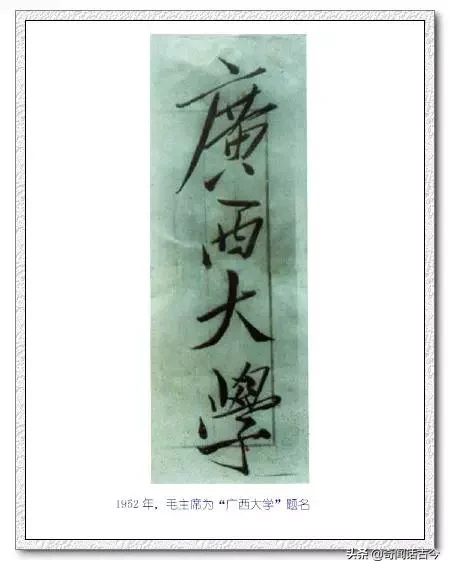 廣西大學
1952年，毛主席为“广西大学”题名
头条 @奇闻话古今